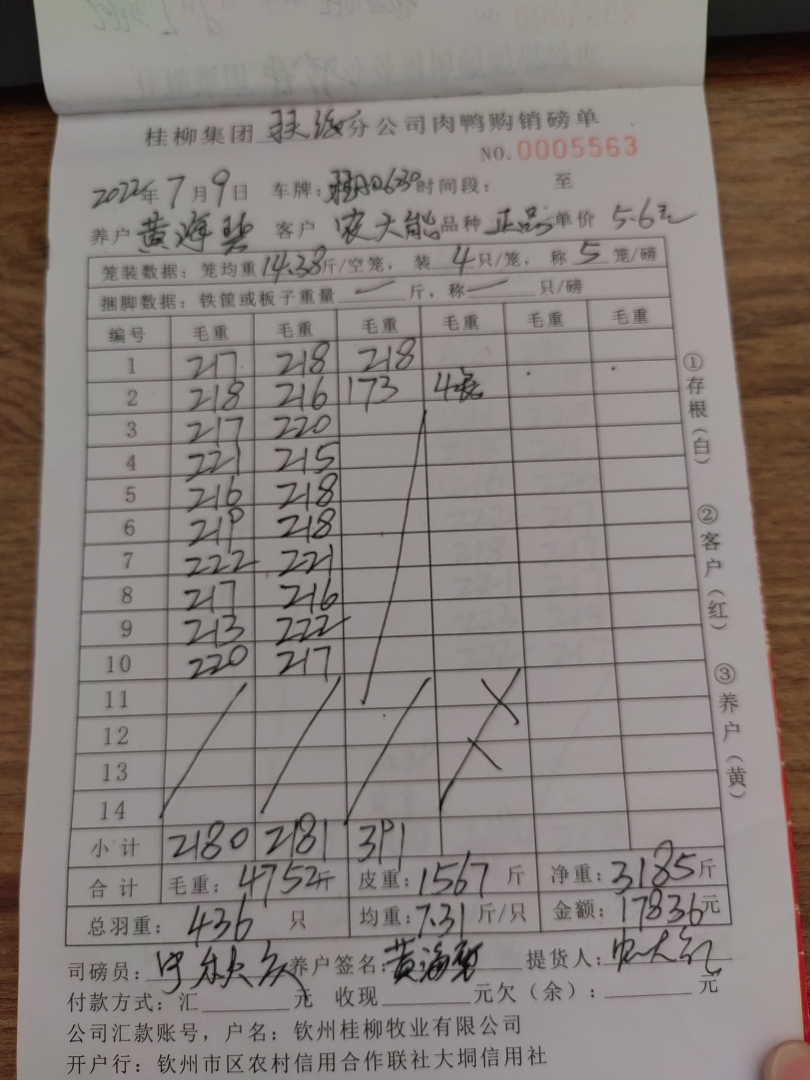 桂柳集团 分公司肉鸭购销磅单
NO.0005563
2022年7月9日 车牌: 时间段: 至
养户 黄海 客户 农大能 品种 正品 单价 5.6元
笼装数据:笼均重14.38斤/空笼, 装4只/笼, 称5笼/磅
捆脚数据:铁筐或板子重量 一 斤,称 一 只/磅
编号 毛重 毛重 毛重 毛重 毛重 毛重
1 217 218 218
2 218 216 173 4笼
3 217 220
4 221 215
5 216 218
6 219 218
7 222 221
8 217 216
9 213 222
10 220 217
11
12
13
14
小计 2180 2181 391
合计 毛重:4752斤 皮重:1567斤 净重:3185斤
总羽重:436只 均重:7.31斤/只 金额:17836元
司磅员: 养户签名:黄海 提货人:
付款方式:汇 元 收现 元欠(余): 元
公司汇款账号,户名:钦州桂柳牧业有限公司
开户行:钦州市区农村信用合作联社大垌信用社
①存根(白)
②客户(红)
③养户(黄)